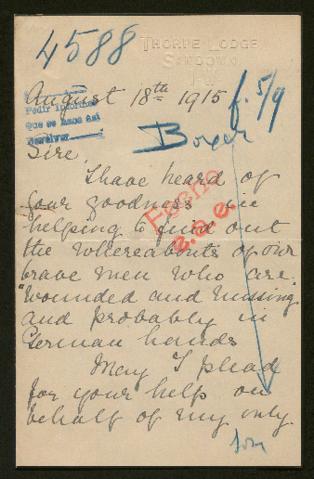 4588
THORPE LODGE
SANDOWN
August 18th 1915
f. 5/9
Pedir informes
Que se haga así
Boxer
Sire,
I have heard of
your goodness in
helping to find out
the whereabouts of our
brave men who are
"wounded and missing
and probably in
German hands
May I plead
for your help on
behalf of my only
son
Fecha